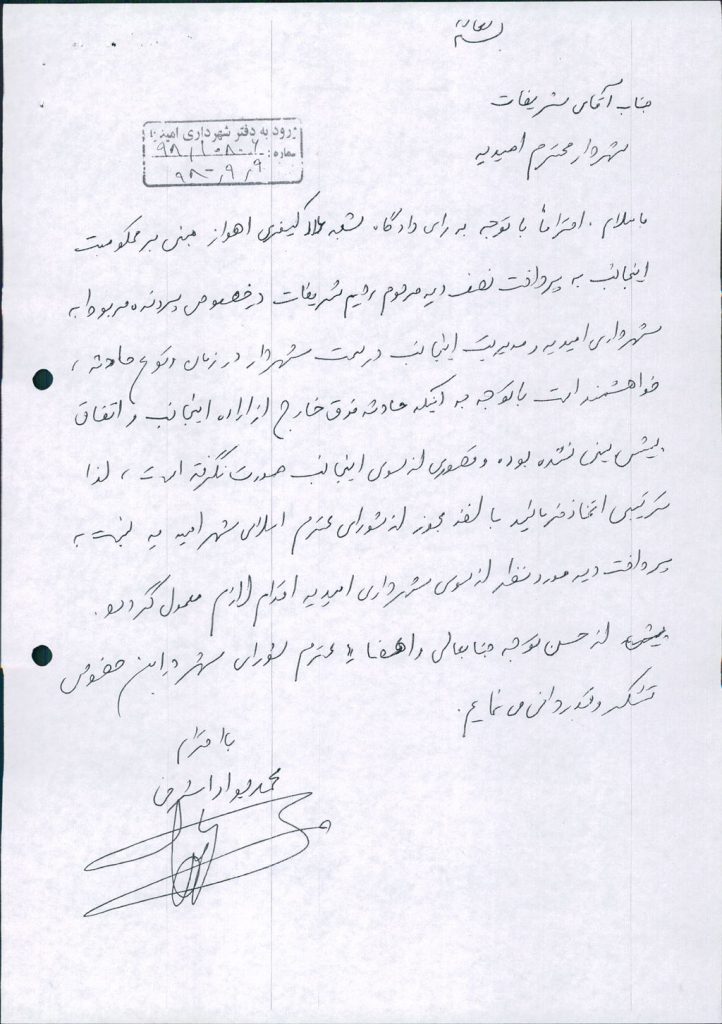 بسمه تعالی
جناب آقای شریفات
شهردار محترم امیدیه
ورود به دفتر شهرداری امیدیه
شماره: ۹۸/۱۰۸۰۶
۹۸/۹/۹
با سلام. احتراماً با توجه به رای دادگاه شعبه کیفری اهواز مبنی بر محکومیت
اینجانب به پرداخت نصف دیه مرحوم رحیم شریفات در خصوص پرونده مربوط به
شهرداری امیدیه و مدیریت اینجانب در سمت شهردار در زمان وقوع حادثه ،
خواهشمند است با توجه به اینکه حادثه فوق خارج از اراده اینجانب و اتفاق
پیش بینی نشده بوده و قصوری از سوی اینجانب صورت نگرفته است ، لذا
ترتیبی اتخاذ فرمائید با اخذ مجوز از شورای محترم اسلامی شهر امیدیه نسبت به
پرداخت دیه مورد نظر از سوی شهرداری امیدیه اقدام لازم معمول گردد.
پیش از حسن توجه جنابعالی و اعضا محترم شورای شهر در این خصوص
تشکر و قدردانی می نمایم.
با احترام
محمد جواد اشرفی